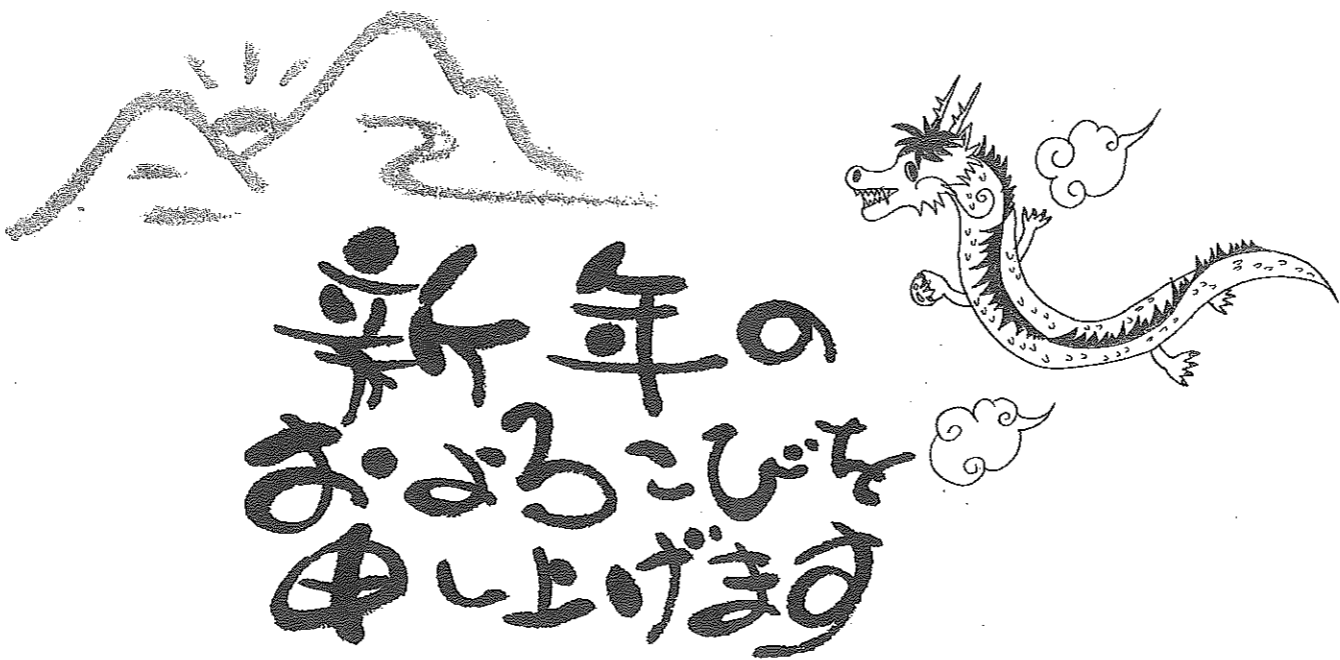 新年の
およろこびを
申し上げます